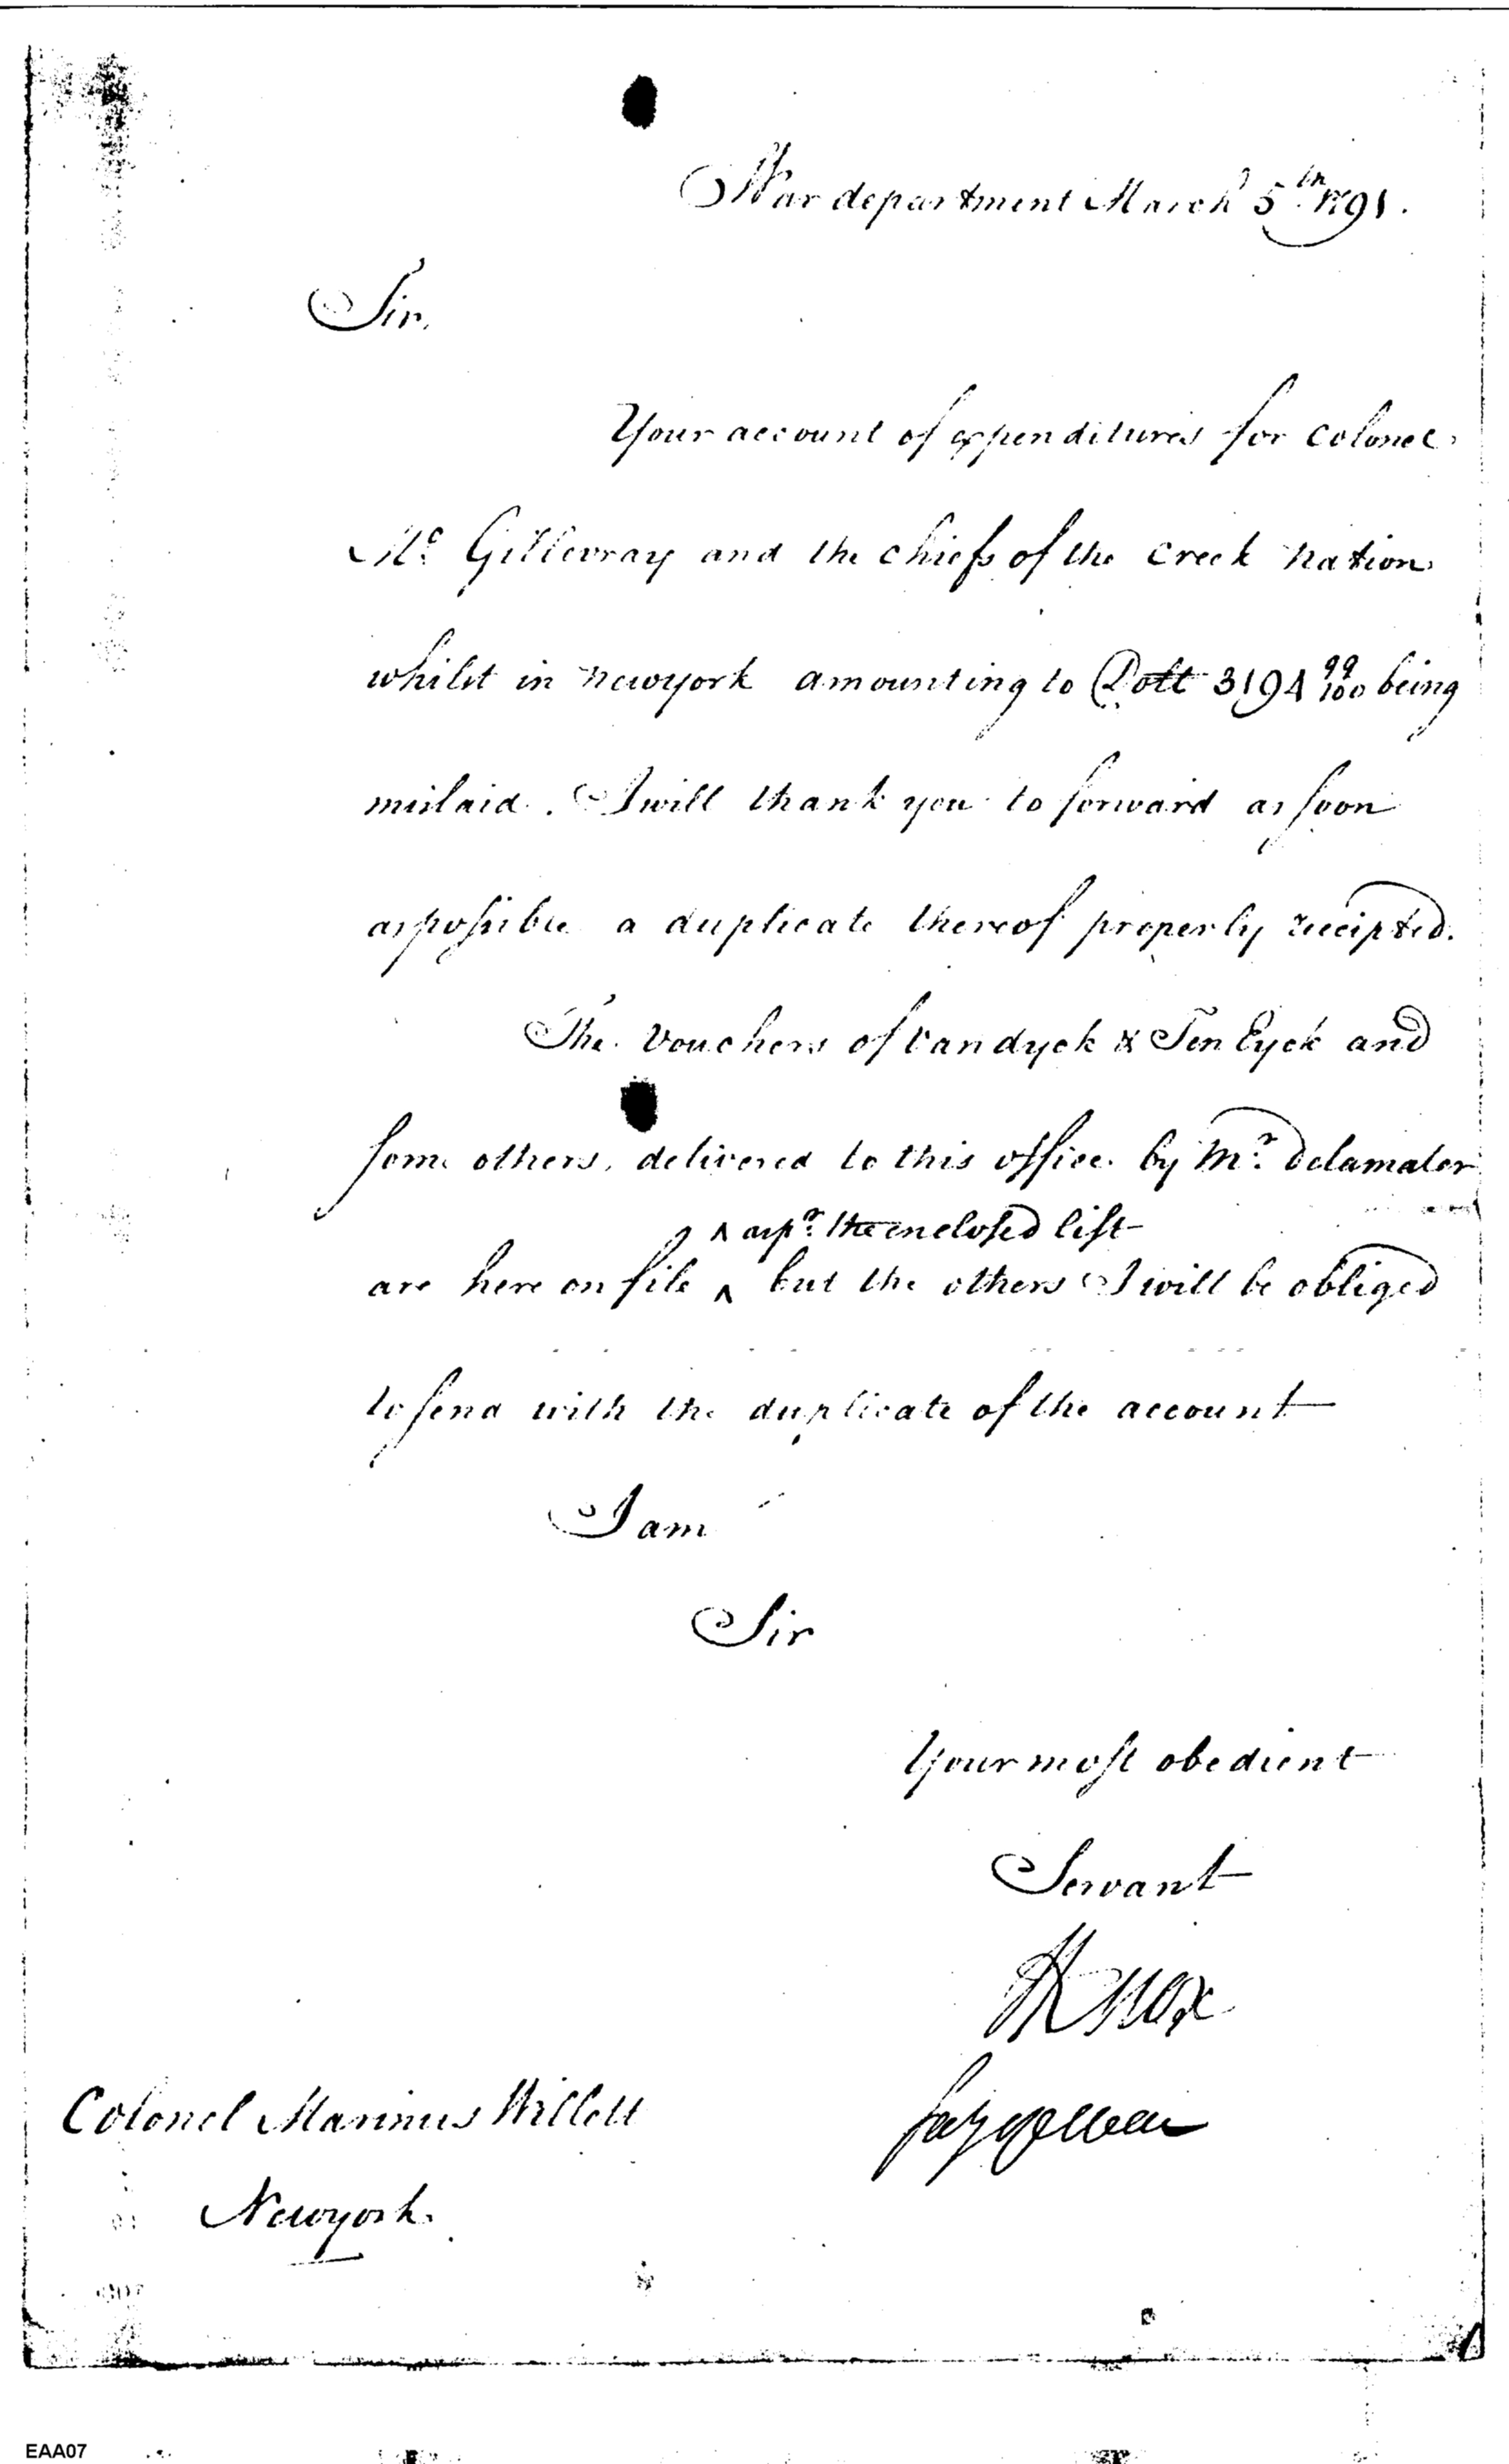 War department March 5th 1791.
Sir,
Your account of expenditures for Colonel
Mc Gillevray and the chiefs of the Creek Nation
whilst in newyork amounting to Doll 3194 99/100 being
mislaid. I will thank you to forward as soon
as possible a duplicate thereof properly receipted.
The Vouchers of Vandyck & Ten Eyck and
some others, delivered to this office by Mr. Delamater
^ as pr. the enclosed list
are here on file ^ but the others I will be obliged
to send with the duplicate of the account
I am
Sir
Your most obedient
Servant
HKnox
Secy of War
Colonel Marinus Willett
Newyork.
EAA07